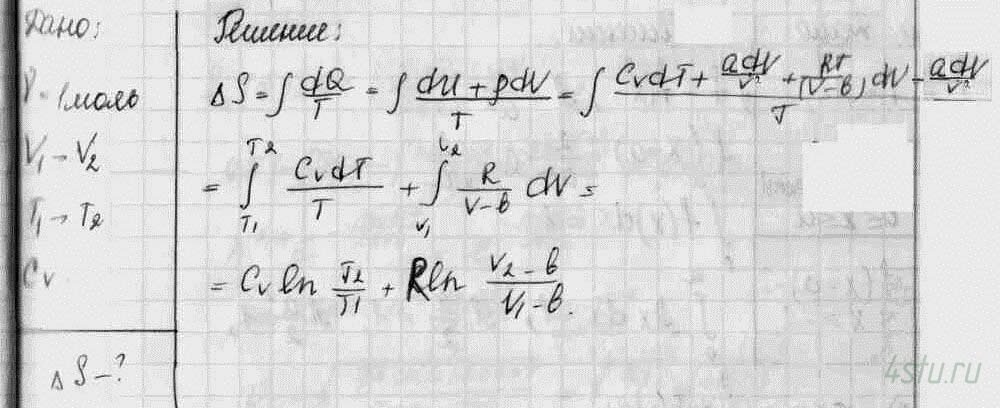 Дано:
ν = 1 моль
V₁ → V₂
T₁ → T₂
Cv
ΔS – ?
Решение:
ΔS = ∫ dQ/T = ∫ (dU + pdV)/T = ∫ (CvdT + adV/V² + RT/(V–b) dV – adV/V²)/T
= ∫_{T₁}^{T₂} CvdT/T + ∫_{V₁}^{V₂} R/(V–b) dV =
= Cv ln T₂/T₁ + R ln (V₂ – b)/(V₁ – b).
4stu.ru